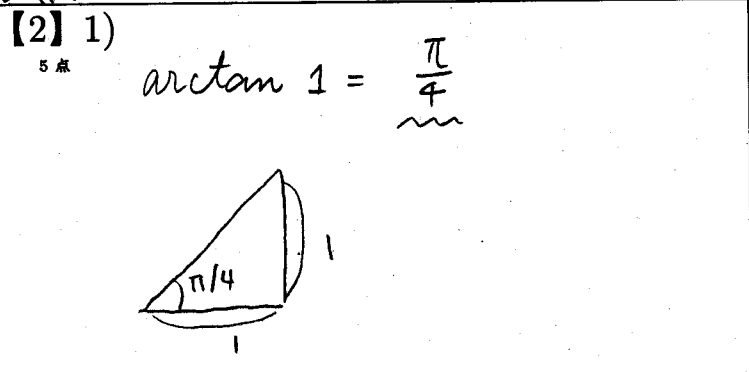 【2】1)
5点
arctan 1 = π/4
π/4
1
1